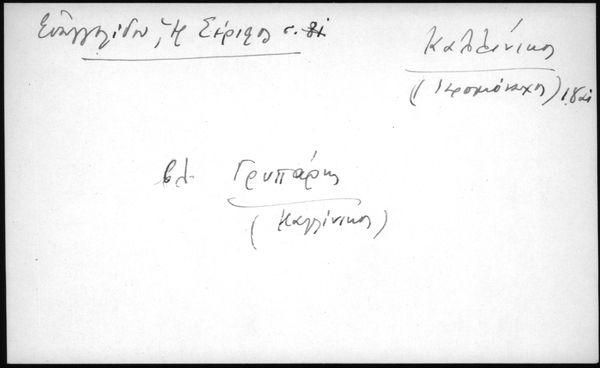 Εὐαγγελίδου, Ἡ Σέριφος σ. 81
Καλλίνικος
(Ἱερομόναχος) 181
βλ. Γρυπάρης
(Καλλίνικος)